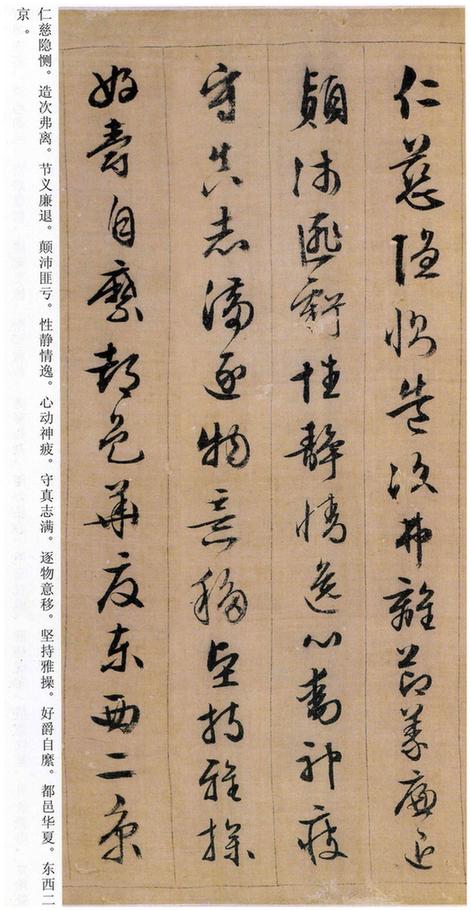 仁慈隱惻造次弗離節義廉退
顛沛匪虧性靜情逸心動神疲
守真志滿逐物意移堅持雅操
好爵自縻都邑華夏東西二京
仁慈隐恻。造次弗离。节义廉退。颠沛匪亏。性静情逸。心动神疲。守真志满。逐物意移。坚持雅操。好爵自縻。都邑华夏。东西二
京。